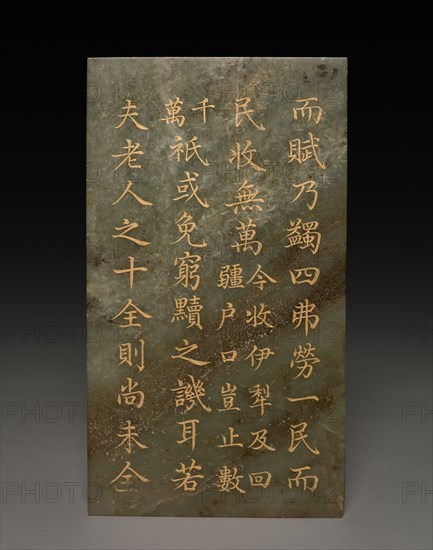 而賦乃蠲四弗勞一民而
民收無萬今收伊犁及回
疆户口豈止數
千
萬
祇或免窮黷之譏耳若
夫老人之十全則尚未全